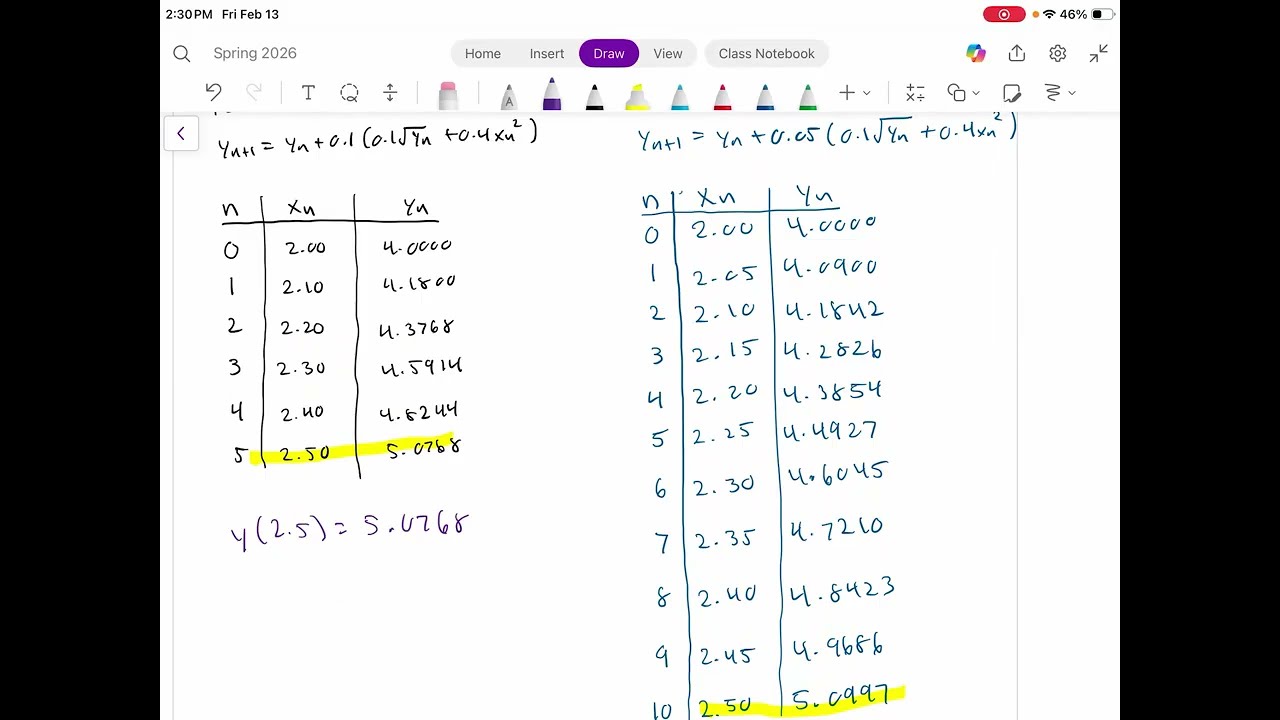 2:30 PM Fri Feb 13
46%
Spring 2026
Home Insert Draw View Class Notebook
yn+1 = yn + 0.1 (0.1√yn + 0.4xn²)
n xn yn
0 2.00 4.0000
1 2.10 4.1800
2 2.20 4.3768
3 2.30 4.5914
4 2.40 4.8244
5 2.50 5.0768
y(2.5) = 5.0768
yn+1 = yn + 0.05 (0.1√yn + 0.4xn²)
n xn yn
0 2.00 4.0000
1 2.05 4.0900
2 2.10 4.1842
3 2.15 4.2826
4 2.20 4.3854
5 2.25 4.4927
6 2.30 4.6045
7 2.35 4.7210
8 2.40 4.8423
9 2.45 4.9686
10 2.50 5.0997